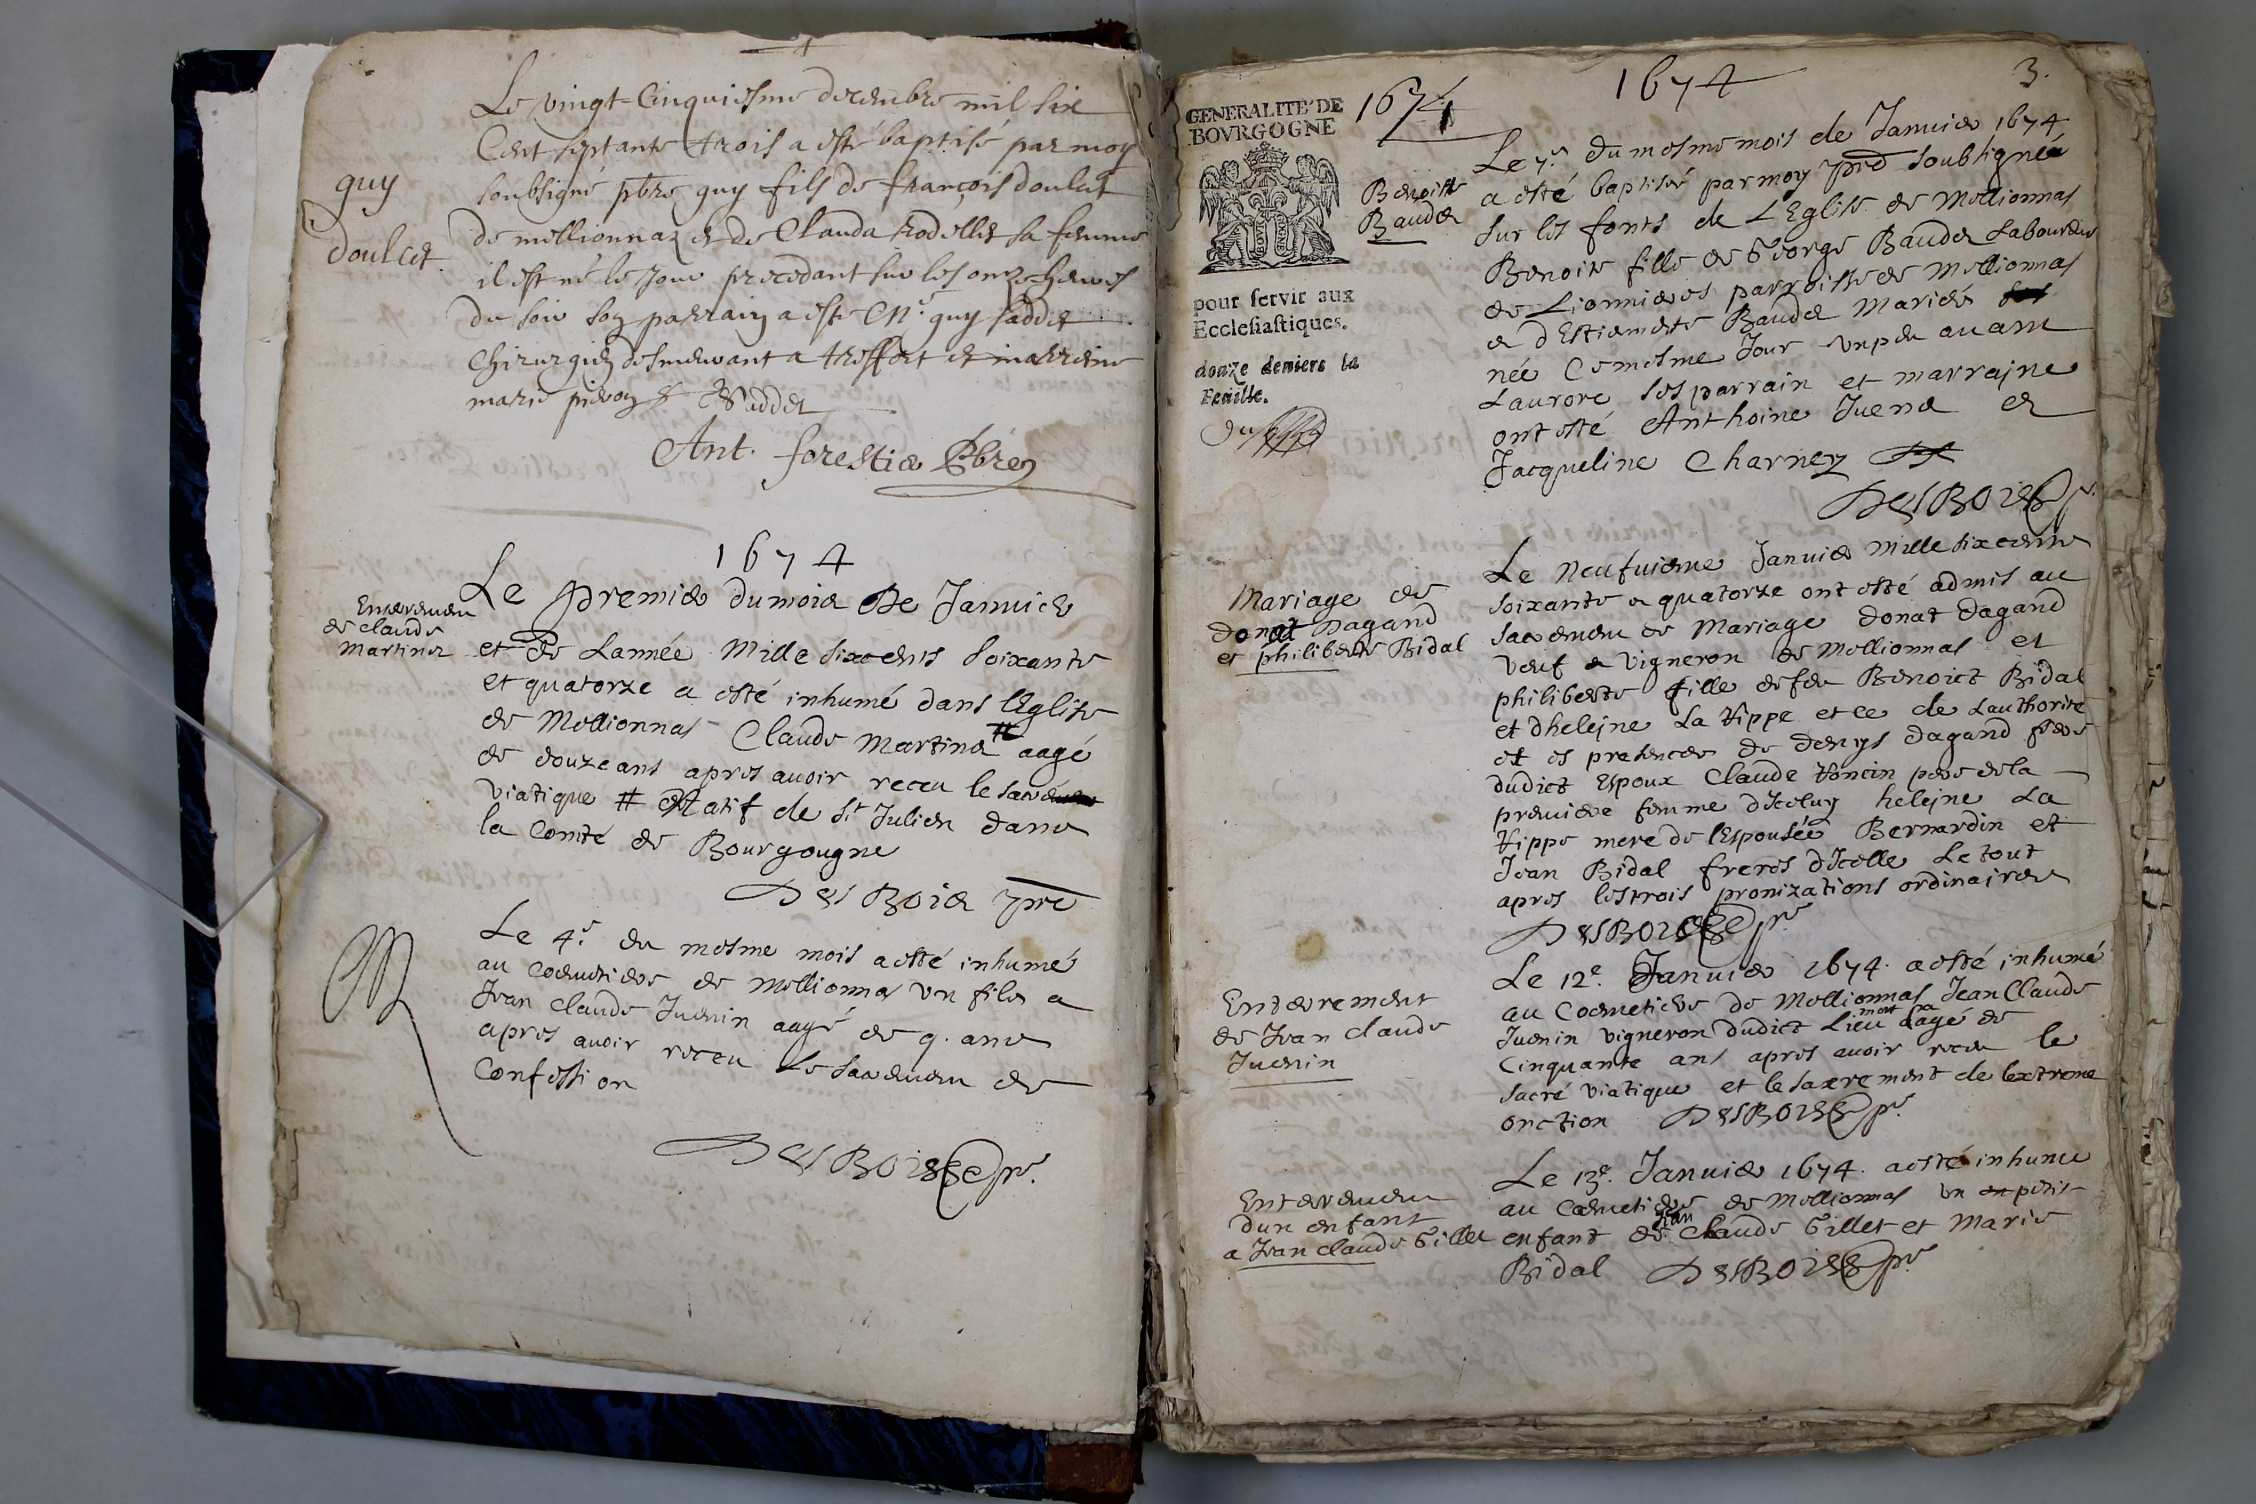 Le vingt-Cinquiesme decembre mil six
Cent septante trois a esté baptisé par moy
soubsigné pbre guy fils de françois doulcet
de mellionnaz et de Clauda Rodellet sa femme
il est né le jour precedant sur les onze heures
du soir son parrain a esté Mr. guy saddet
Chirurgien demeurant a treffort et marreine
marie
guy
doulcet
Ant. forestier Pbre
1674
Le premier du mois De Janvier
et De Lannée Mille sixcents soixante
et quatorze a esté inhumé dans l'Eglise
de Mellionnas Claude Martinet # aagé
de douze ans apres avoir receu le sacré
viatique # Natif de St Julien dans
la Comté de Bourgougne
DesBois pre
Enterement
de Claude
Martinet
Le 4e. du mesme mois a esté inhumé
au Coemetiere de Mellionnas un fils a
Jean Claude Juenin aagé de 9. ans
apres avoir receu Le sacrement de
Confession
DesBois pr.
1674
3.
GENERALITE' DE
BOVRGOGNE
pour servir aux
Ecclesiastiques.
douze deniers la
Feuille.
1674
Benoiste
Baudet
Le 7e. du mesme mois de Janvier 1674
a esté baptisée par moy pre soubsigné
sur les fonts de L'Eglise de Mellionnas
Benoite fille de George Baudet Laboureur
de Lionnieres parroisse de Mellionnas
et d'Estiennette Baudet Mariés
née Ce mesme Jour un peu avant
Laurore ses parrain et marrajne
ont esté Anthoine Juenet et
Jacqueline Charney
DesBois pr.
Mariage de
donat Dagand
et philiberte Bidal
Le Neufviesme Janvier Mille sixcents
soixante et quatorze ont esté admis au
sacrement de Mariage donat dagand
veuf et vigneron de Mellionnas et
philiberte fille de feu Benoict Bidal
et d'helejne La Vippe et ce de Lauthorité
et es presences de denys dagand frere
dudict Espoux Claude Poncin pere de la
premiere femme d'Iceluy helejne La
Vippe mere de l'Espousée Bernardin et
Jean Bidal freres d'Icelle Le tout
apres les trois pronizations ordinajres
DesBois pr
Enterement
de Jean Claude
Juenin
Le 12e. Janvier 1674. a esté inhumé
au Coemetiere de Mellionnas Jean Claude
Juenin vigneron dudict Lieu aagé de
Cinquante ans apres avoir receu le
sacré viatique et le sacrement de lextreme
onction DesBois pr.
Enterement
d'un enfant
a Jean Claude Gillet
Le 13e. Janvier 1674. a esté inhumé
au Coemetiere de Mellionnas un petit
enfant de Jean Claude Gillet et Marie
Bidal DesBois pr